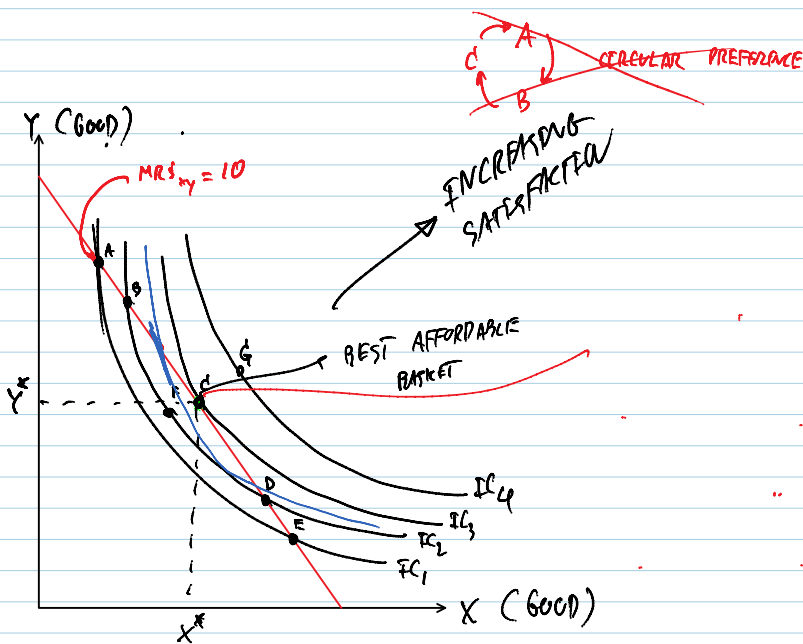 A
C
CIRCULAR PREFERENCE
B
Y (GOOD)
MRSxy = 10
INCREASING
SATISFACTION
A
B
G
BEST AFFORDABLE
BASKET
F
C
Y*
D
IC4
E
IC3
IC2
IC1
X (GOOD)
X*